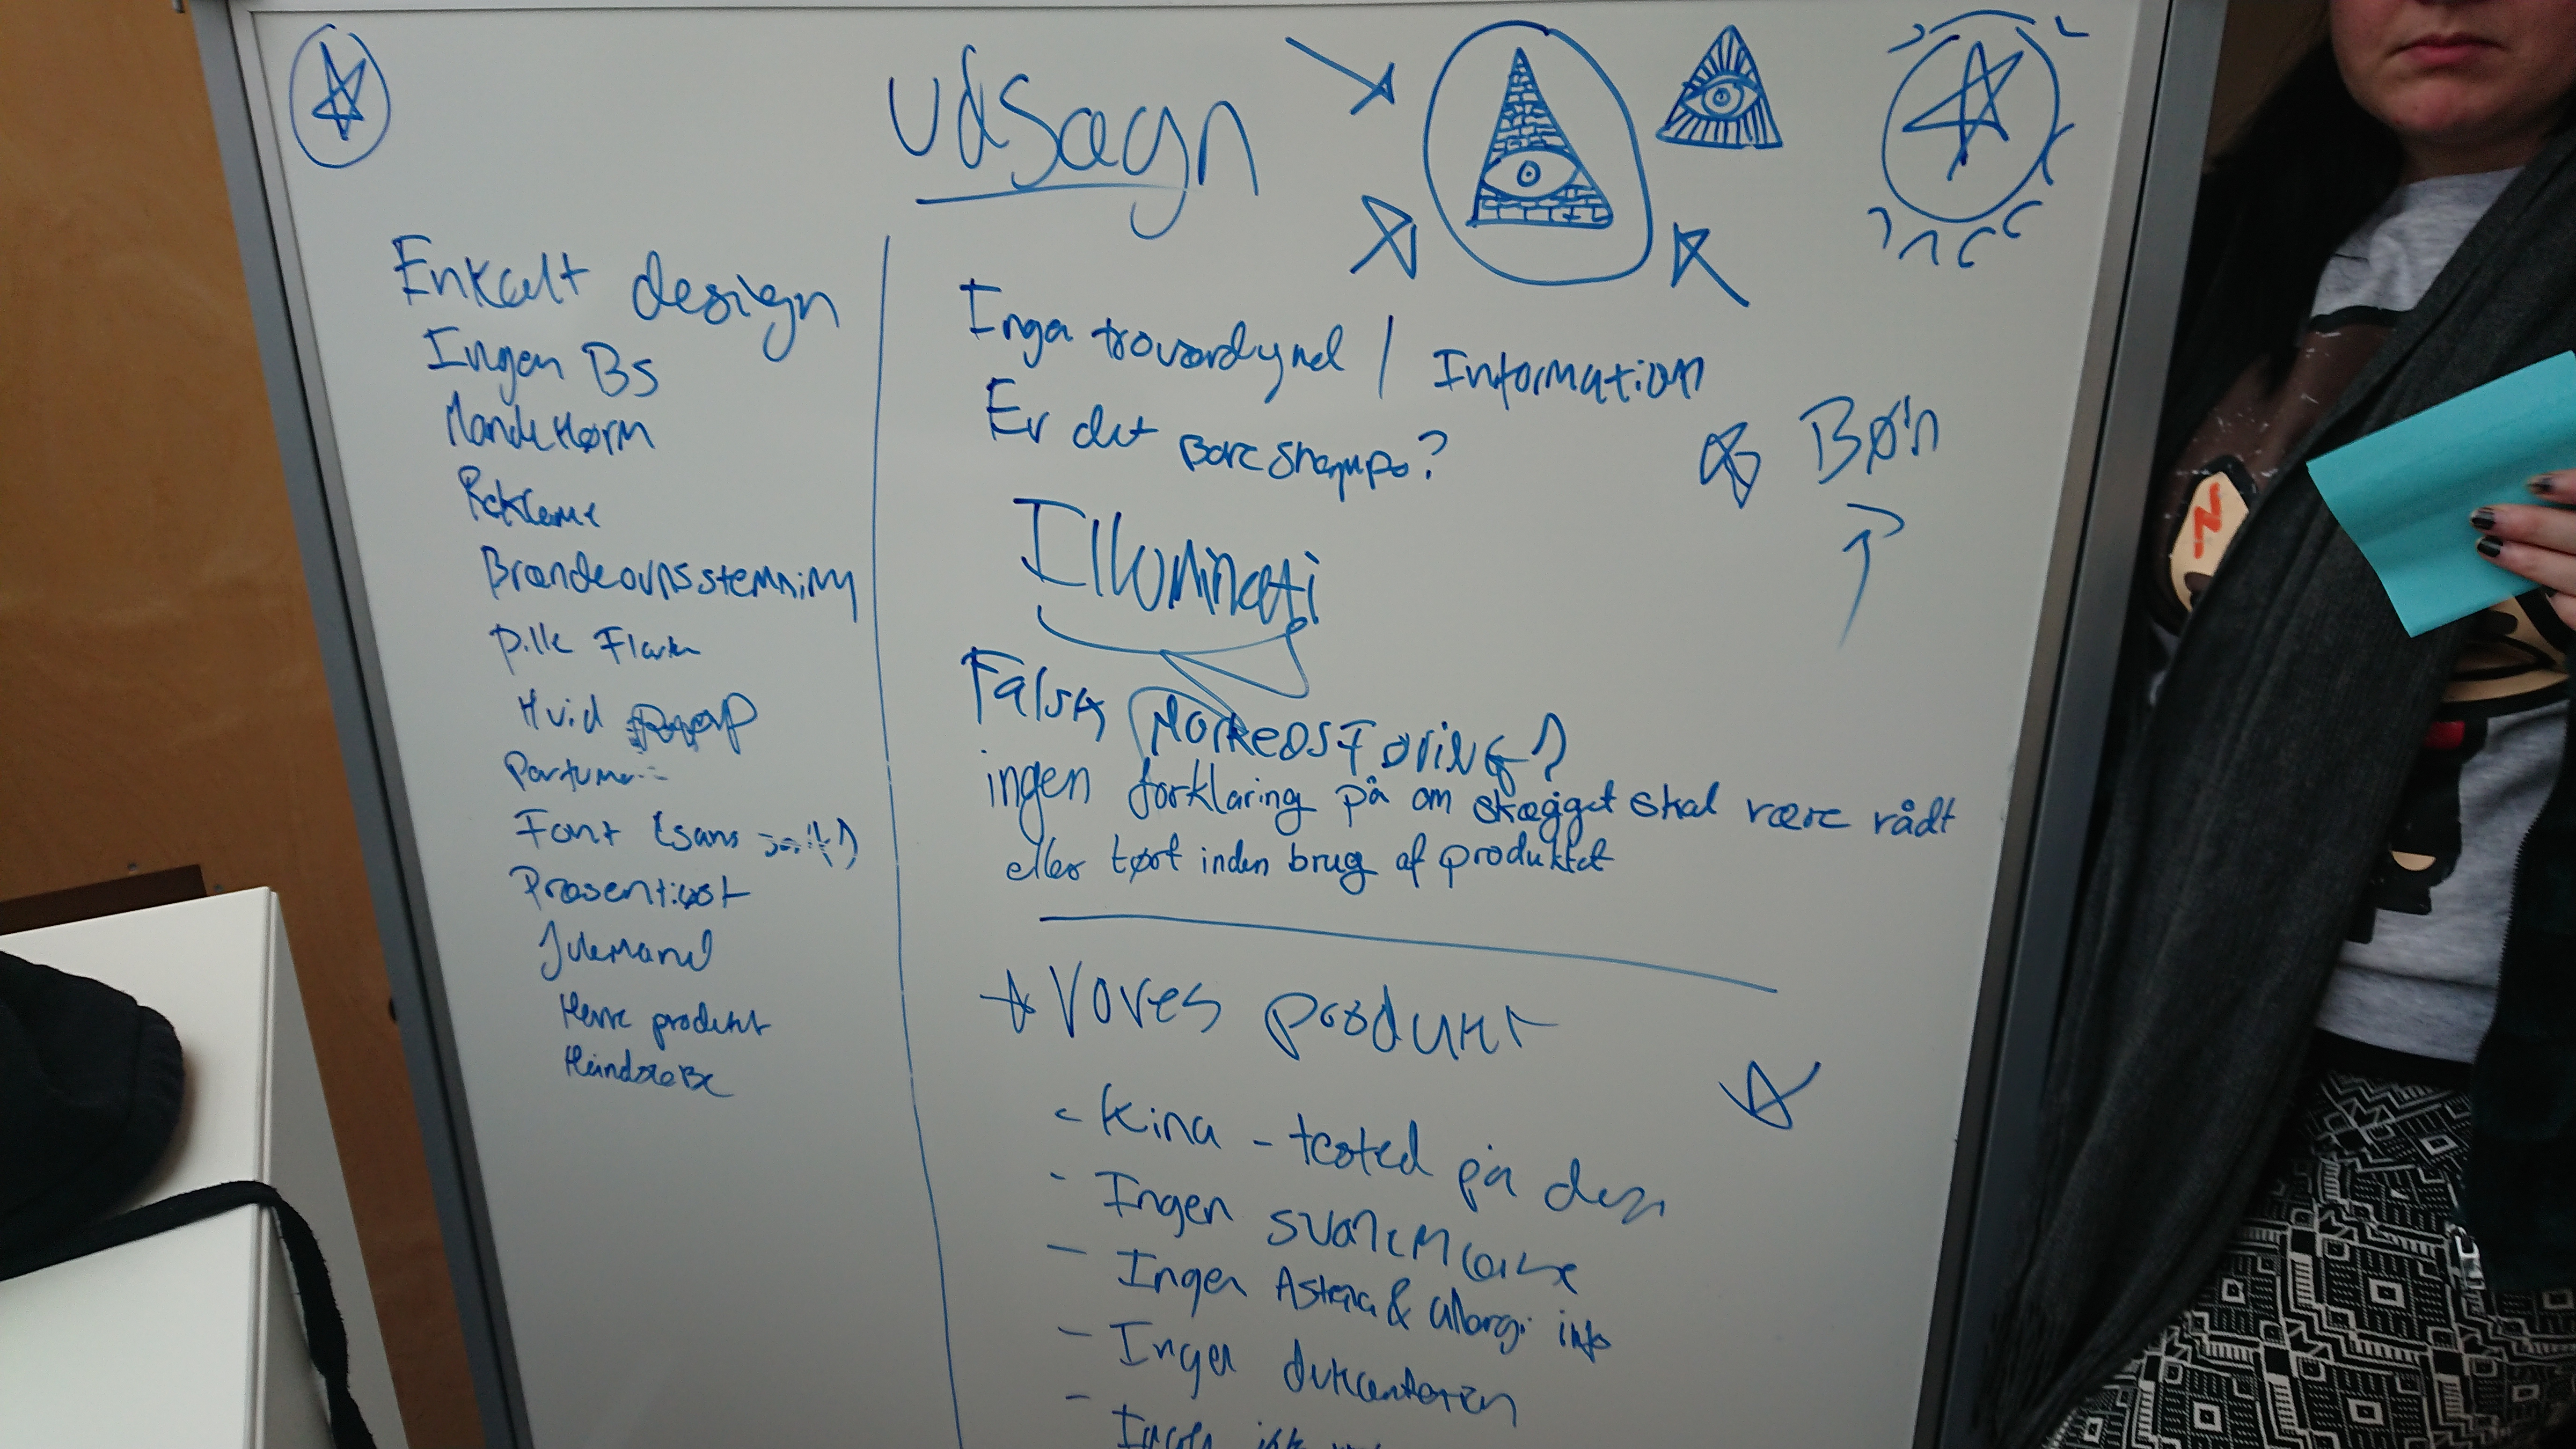 Udsagn
Enkelt design
Ingen BS
Mande Hørm
Reklame
Brændeovnsstemning
Pille Flaske
Hvid
Parfume
Font (sans serif)
Præsentiøst
Julemand
Herre produkt
Håndsæbe
Inga troværdighed / Information
Er det Bare Shampo?
Bøn
Illuminati
Falsk Markedsføring?
ingen forklaring på om skægget skal være vådt
eller tørt inden brug af produktet
Vores produkt
- Kina - tested på
- Ingen svanemærke
- Ingen Astma & allergi info
- Ingen
- Ingen ikke